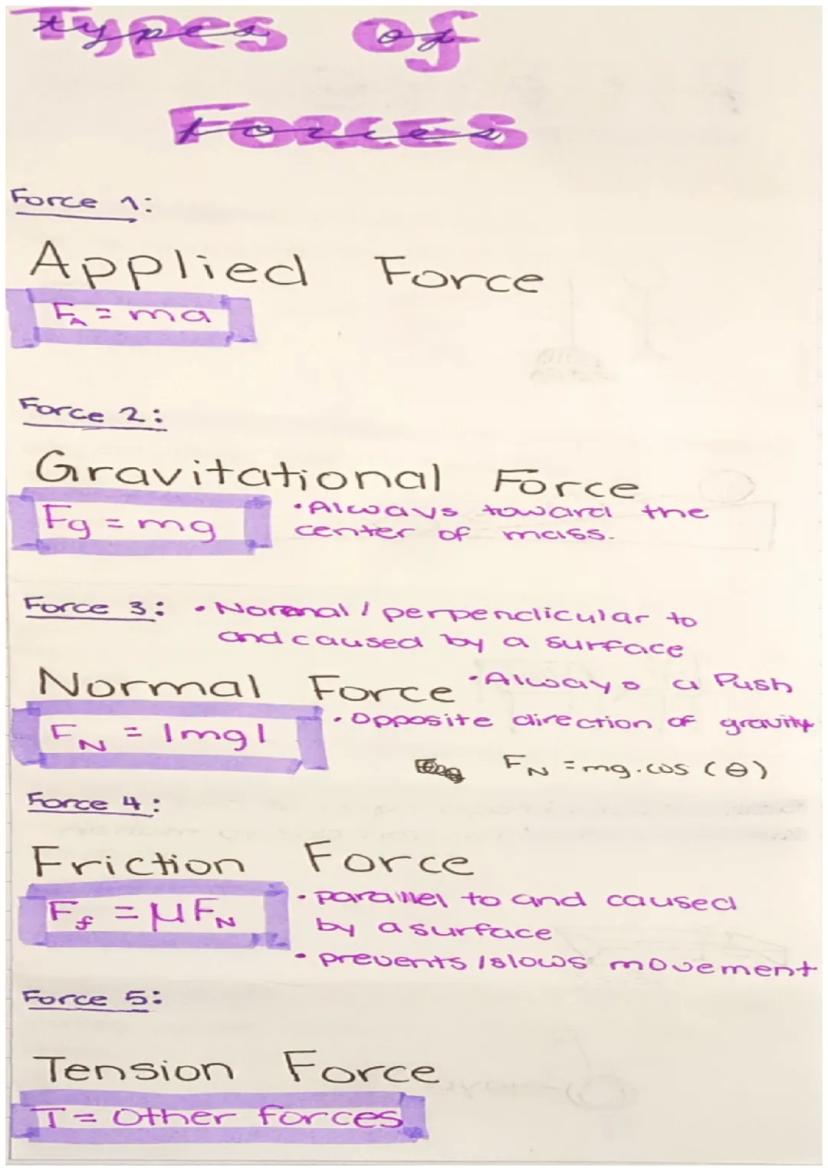 Types of
Forces
Force 1:
Applied Force
F_A = ma
Force 2:
Gravitational Force
Fg = mg
• Always toward the
center of mass.
Force 3:
• Normal / perpendicular to
and caused by a surface
Normal Force
• Always a Push
F_N = |mg|
• Opposite direction of gravity
F_N = mg.cos (θ)
Force 4:
Friction Force
F_f = μF_N
• parallel to and caused
by a surface
• prevents/slows movement
Force 5:
Tension Force
T = Other forces